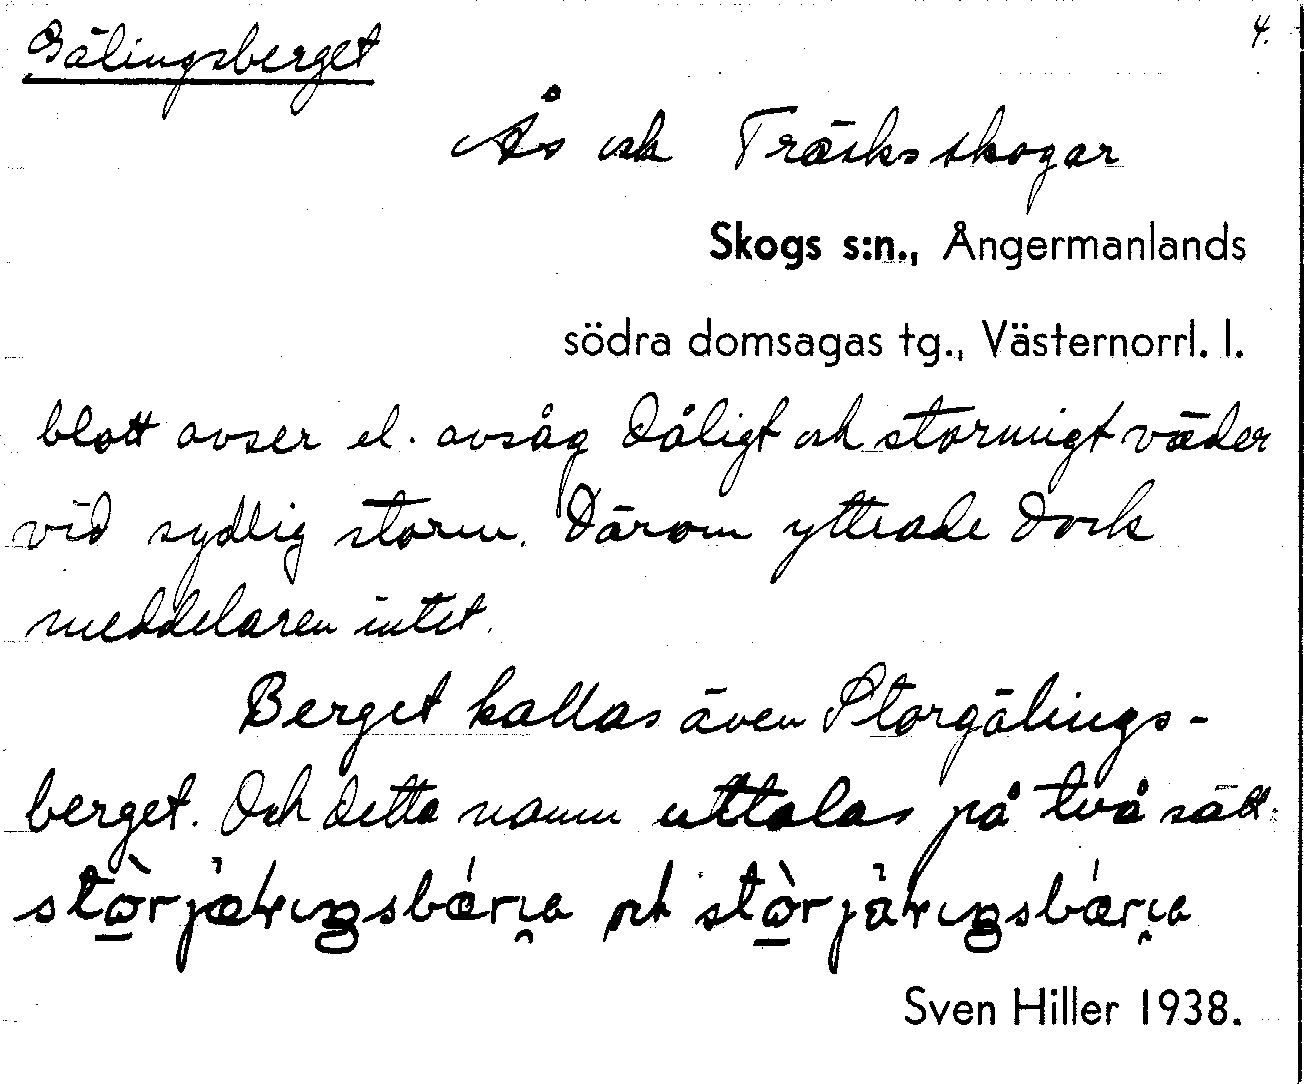 Gälingsberget
4.
Ås och Träsksskogar
Skogs s:n., Ångermanlands
södra domsagas tg., Västernorrl. l.
blott avser el. avsåg dåligt och stormigt väder
vid sydlig storm. Därom yttrade dock
meddelaren intet.
Berget kallas även Storgälings-
berget. Och detta namn uttalas på två sätt:
och
Sven Hiller 1938.